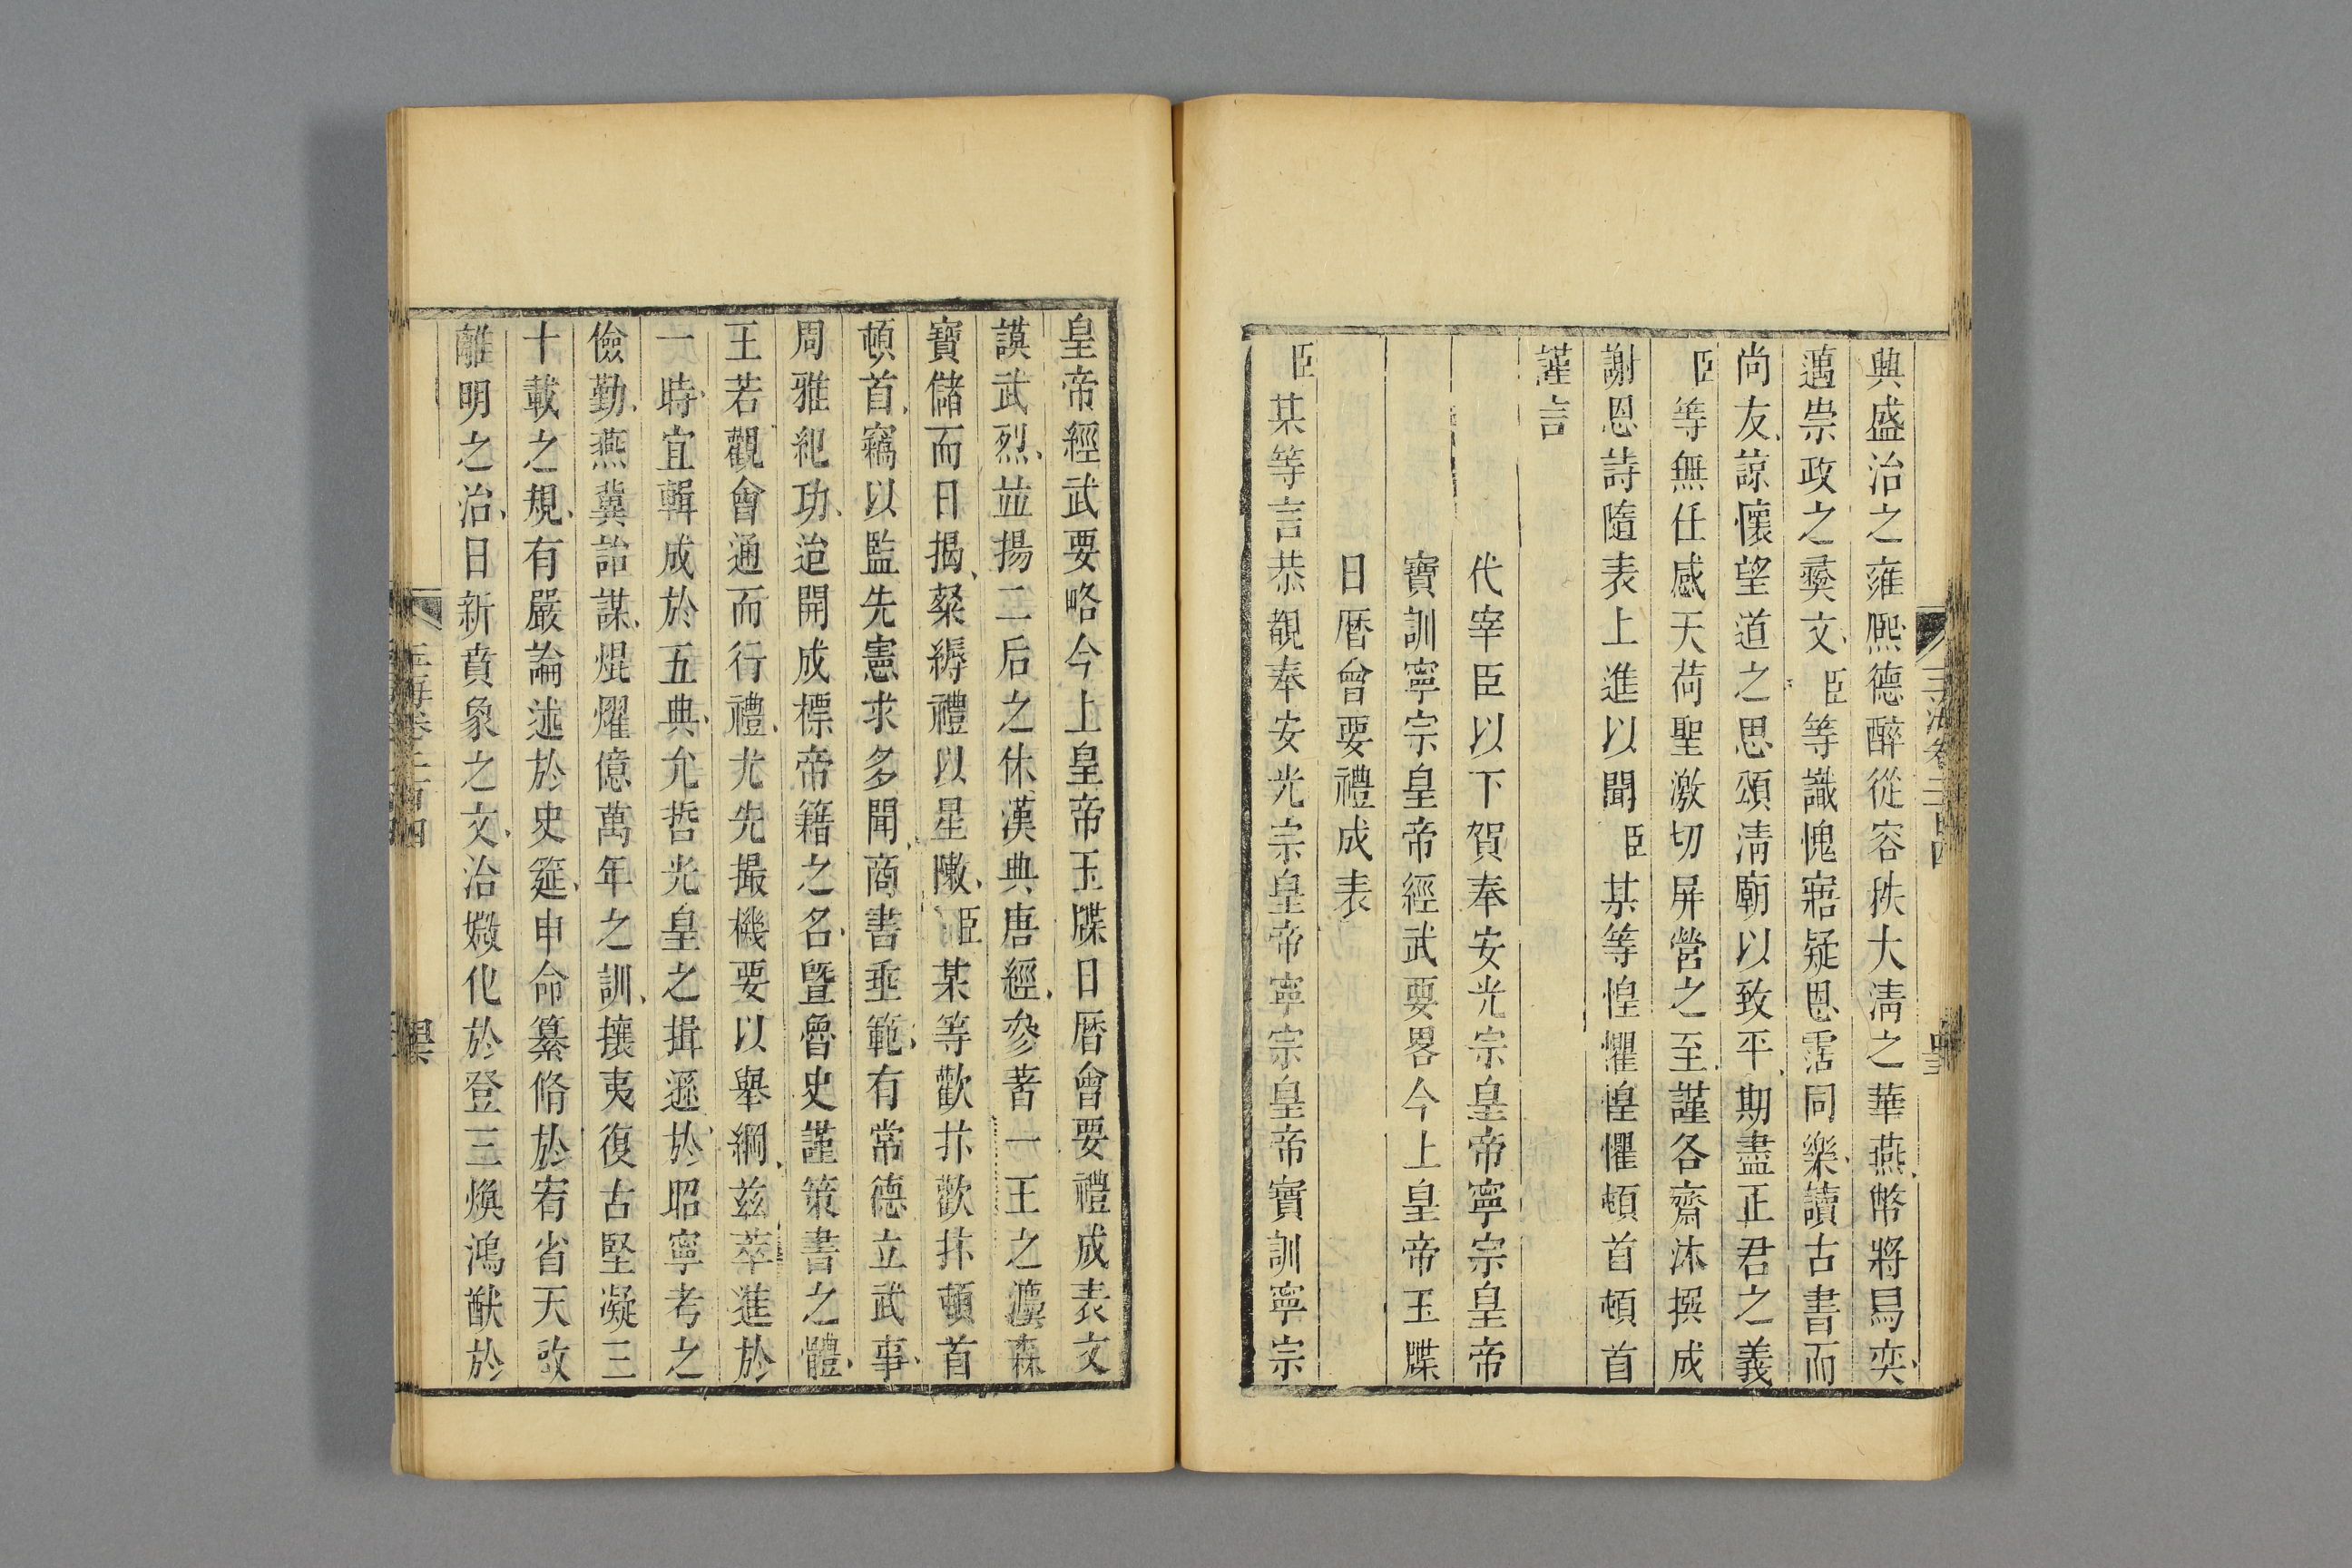 興盛治之雍熈德醉從容秩大淸之華燕幣將舄奕
邁崇政之奏文臣等識愧寤疑恩霑同樂讀古書而
尚友諒懷望道之思頌淸廟以致平期盡正君之義
臣等無任感天荷聖激切屏營之至謹各齋沐撰成
謝恩詩隨表上進以聞臣某等惶懼惶懼頓首頓首
謹言
代宰臣以下賀奉安光宗皇帝寧宗皇帝
寶訓寧宗皇帝經武要畧今上皇帝玉牒
日曆會要禮成表
臣某等言恭覩奉安光宗皇帝寧宗皇帝寳訓寧宗
皇帝經武要略今上皇帝玉牒日曆會要禮成表文
謨武烈並揚二后之休漢典唐經參著一王之灋森
寶儲而日揭粲縟禮以星陳臣某等歡抃歡抃頓首
頓首竊以監先憲求多聞商書垂範有常德立武事
周雅紀功迨開成標帝籍之名曁魯史謹策書之體
王若觀會通而行禮尤先撮機要以舉綱兹萃進於
一時宜輯成於五典允哲光皇之揖遜於昭寧考之
儉勤燕冀詒謀焜燿億萬年之訓攘夷復古堅凝三
十載之規有嚴論述於史筵申命纂脩於宥省天啟
離明之治日新賁象之文治媺化於登三煥鴻猷於
玉海卷二百四